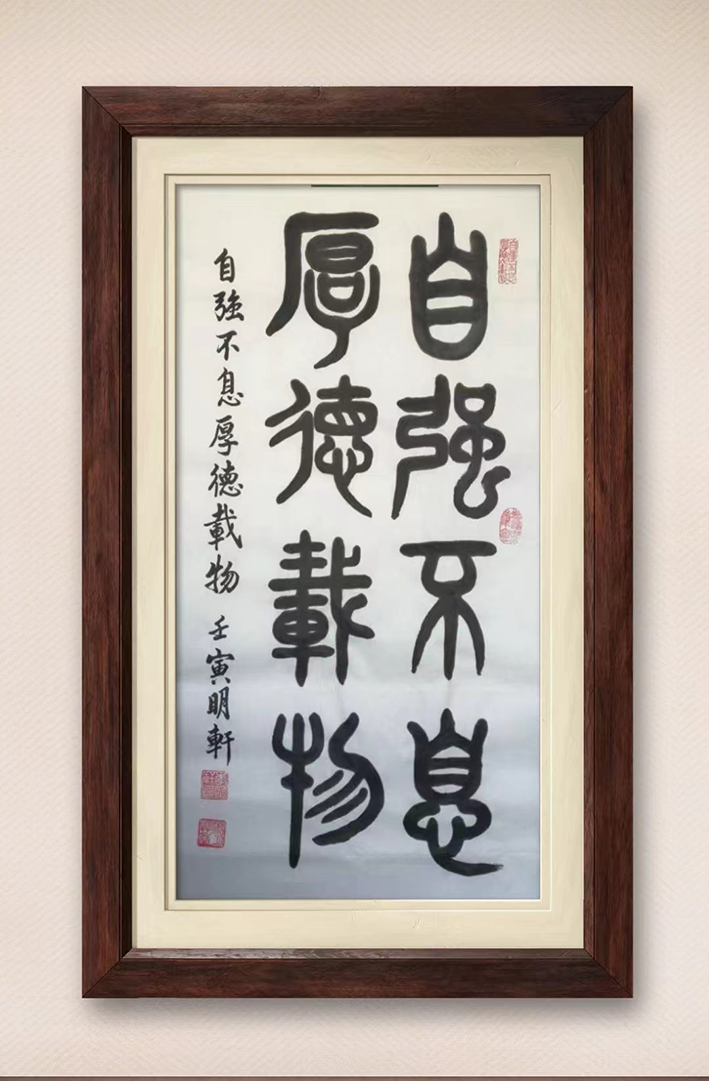 自强不息
厚德載物
自強不息厚德載物 壬寅明軒